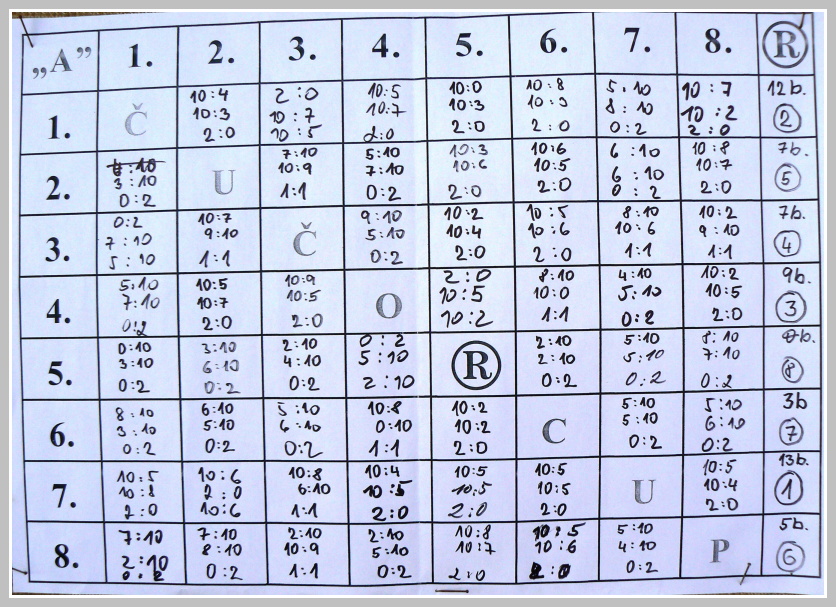 „A” 1. 2. 3. 4. 5. 6. 7. 8. R
1. Č 10:4 2:0 10:5 10:0 10:8 5:10 10:7 12b.
10:3 10:7 10:7 10:3 10:5 8:10 10:2
2:0 10:5 2:0 2:0 2:0 0:2 2:0 2
2. 3:10 U 7:10 5:10 10:3 10:6 6:10 10:8 7b.
0:2 10:9 7:10 10:6 10:5 6:10 10:7
1:1 0:2 2:0 2:0 0:2 2:0 5
3. 0:2 10:7 Č 9:10 10:2 10:5 8:10 10:2 7b.
7:10 9:10 5:10 10:4 10:6 10:6 9:10
5:10 1:1 0:2 2:0 2:0 1:1 1:1 4
4. 5:10 10:5 10:9 O 2:0 8:10 4:10 10:2 9b.
7:10 10:7 10:5 10:5 10:0 5:10 10:5
0:2 2:0 2:0 10:2 1:1 0:2 2:0 3
5. 0:10 3:10 2:10 0:2 R 2:10 5:10 8:10 0b.
3:10 6:10 4:10 5:10 2:10 5:10 7:10
0:2 0:2 0:2 2:10 0:2 0:2 0:2 8
6. 8:10 6:10 5:10 10:8 10:2 C 5:10 5:10 3b
3:10 5:10 6:10 0:10 10:2 5:10 6:10
0:2 0:2 0:2 1:1 2:0 0:2 0:2 7
7. 10:5 10:6 10:8 10:4 10:5 10:5 U 10:5 13b.
10:8 2:0 6:10 10:5 10:5 10:5 10:4
2:0 10:6 1:1 2:0 2:0 2:0 2:0 1
8. 7:10 7:10 2:10 2:10 10:8 10:5 5:10 P 5b.
2:10 8:10 10:9 5:10 10:7 10:6 4:10
0:2 0:2 1:1 0:2 2:0 2:0 0:2 6